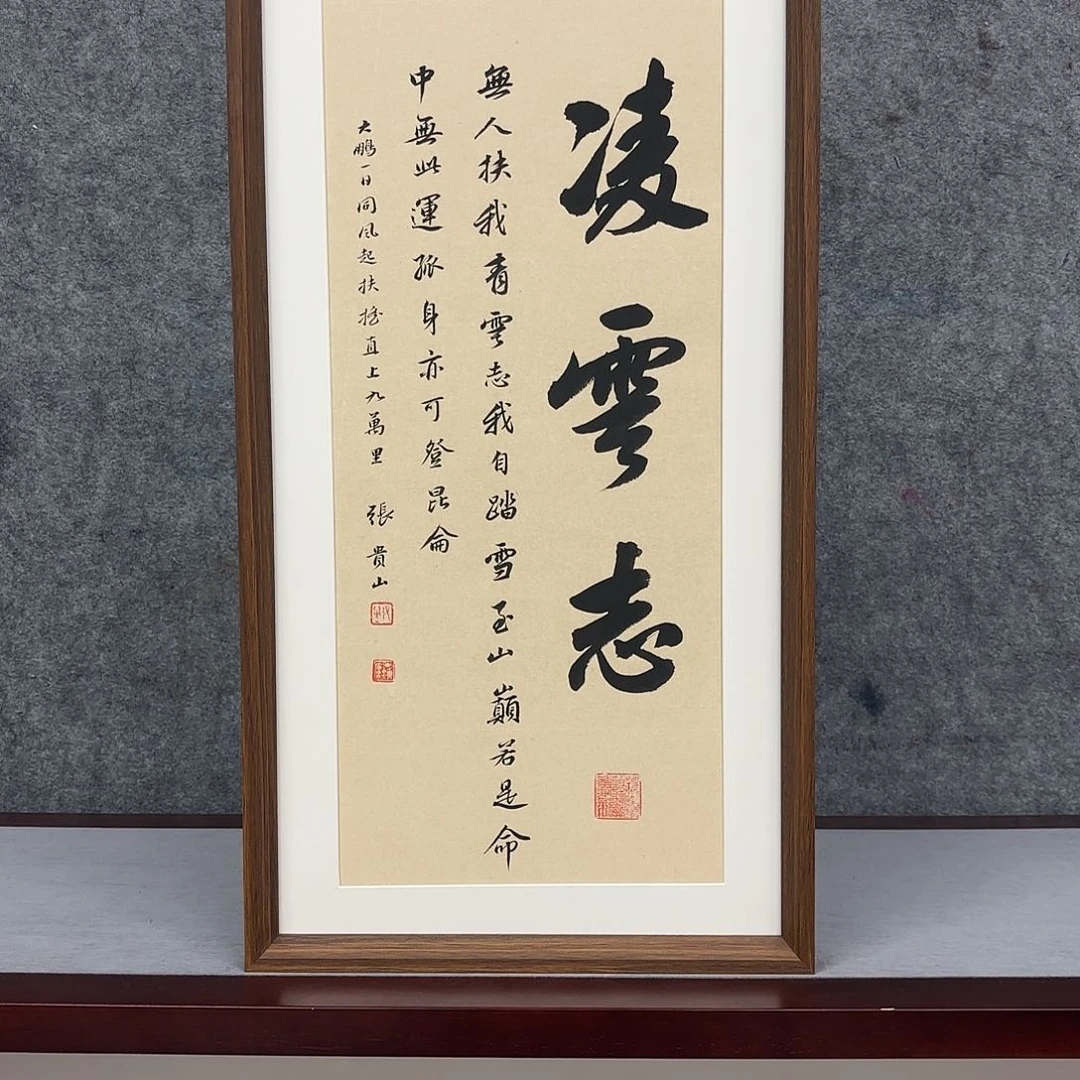 凌雲志
無人扶我青雲志我自踏雪至山巔若是命
中無此運孤身亦可登昆侖
大鵬一日同風起扶搖直上九萬里 張貴山